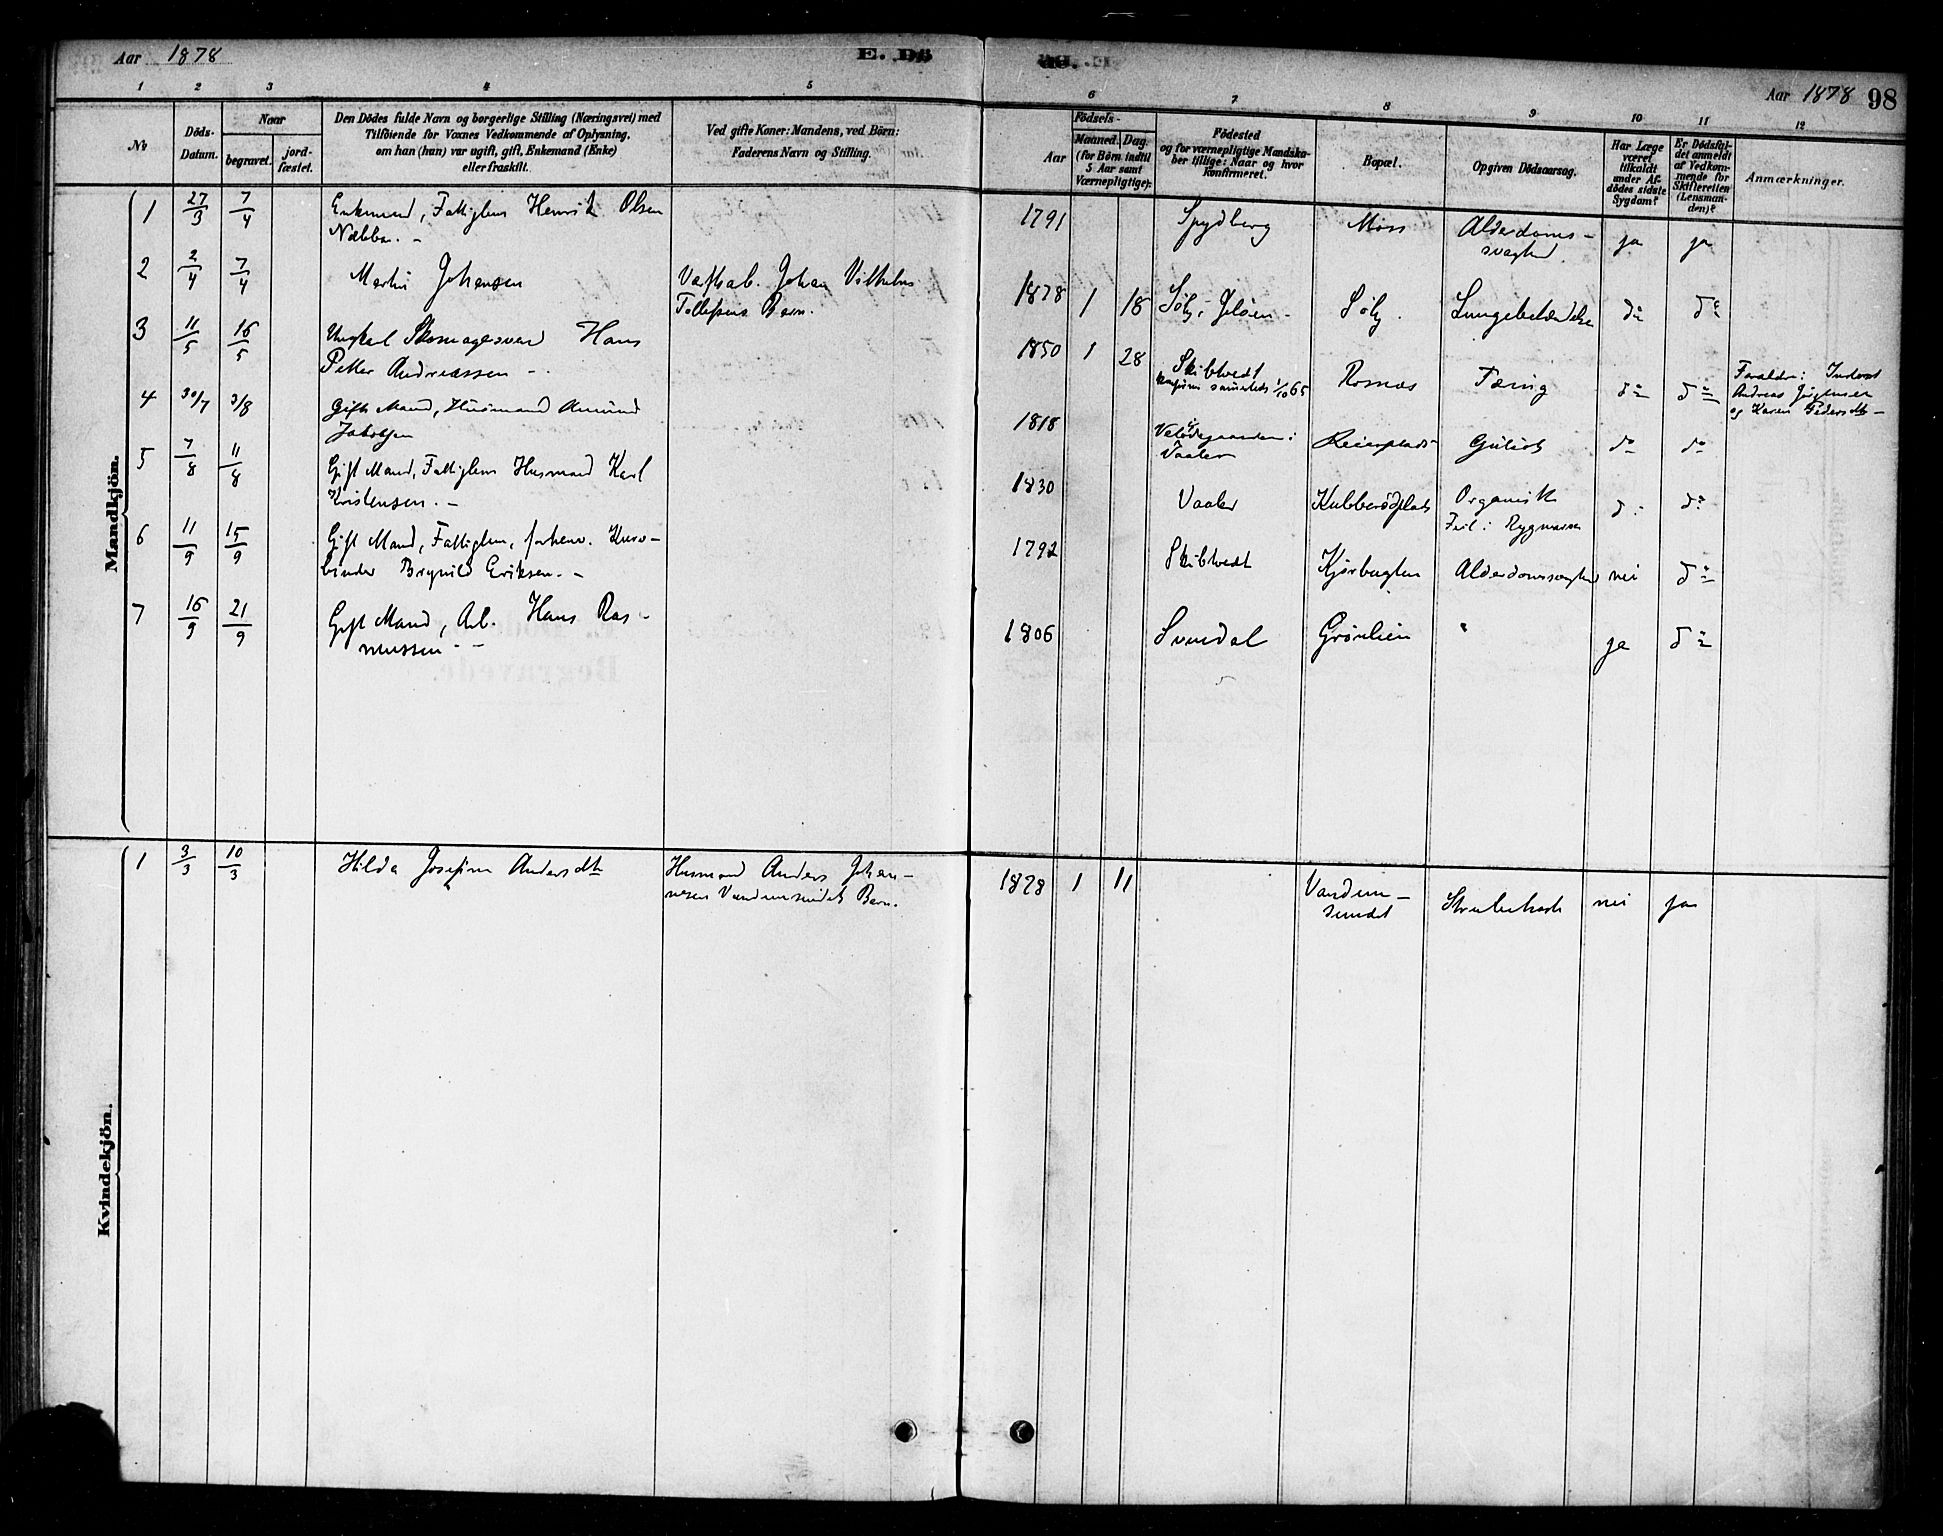 Aar 1878
E. Dö
de.
Aar 1878 98
1 2 3 4 5 6 7 8 9 10 11 12
No
Döds-
Datum.
Naar
begravet.
jord-
fæstet.
Den Dödes fulde Navn og borgerlige Stilling (Næringsvei) med
Tilföiende for Voxnes Vedkommende af Oplysning,
om han (hun) var ugift, gift, Enkemand (Enke)
eller fraskilt.
Ved gifte Koner: Mandens, ved Börn:
Faderens Navn og Stilling.
Födsels-
Aar
Maaned. Dag.
(for Börn indtil
5 Aar samt
Værnepligtige).
Födested
og for værnepligtige Mandska-
ber tillige: Naar og hvor
konfirmeret.
Bopæl.
Opgiven Dödsaarsag.
Har Læge
været
tilkaldt
under Af-
dödes sidste
Sygdom?
Er Dödsfal-
det anmeldt
af Vedkom-
mende for
Skifteretten
(Lensman-
den)?
Anmærkninger.
Mandkjön.
1 27/3 7/4 Enkemand, Fattiglem Henrik Olsen
Næbba. -
1791 Spydberg Moss Alderdoms-
svaghed. ja ja
2 2/4 7/4 Martin Johansen
Johan Vilhelm
Tollefsens Barn.
1878 1 18 Jeløen - Lungebetændelse do do
3 11/5 16/5 Ungkarl Skomagersvend Hans
Petter Andreassen -
1850 1 28 Skibtvedt
samesteds 1/10 65
Rosnæs Tæring do do
Forældre: Inderst
Andreas Jörgensen
og Karen Pedersdtr -
4 30/7 3/8 Gift Mand, Husmand Amund
Jakobsen
1818
Vaaler do do
5 7/8 11/8 Gift Mand, Fattiglem Husmand Karl
Kristensen. -
1830 Vaaler Kubberødplads Organisk
Feil i Rygmarven do do
6 11/9 15/9 Gift Mand, Fattiglem, forhenv. Kurv-
binder Brynild Eriksen. -
1792 Skibtvedt Kjørbugten Alderdomssvaghed nei do
7 16/9 21/9 Gift Mand, Arb. Hans Ras-
mussen - -
1806 Svindal Grønlien " ja do
Kvindekjön.
1 3/3 10/3 Hilda Josefine Andersdtr
Husmand Anders Johan-
nesen Vandemsundets Barn.
1878 1 11 Vandem-
sundet Strubehoste nei ja